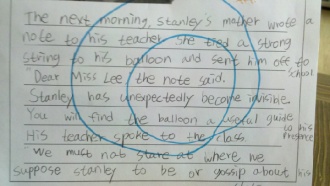 The next morning, Stanley's mother wrote a
note to his teacher. She tied a strong
string to his balloon and sent him off to
school
Dear Miss Lee the note said.
Stanley has unexpectedly become invisible.
You will find the balloon a useful guide
to his
presence
His teacher spoke to the class.
We must not stare at where we
suppose stanley to be or gossip about his